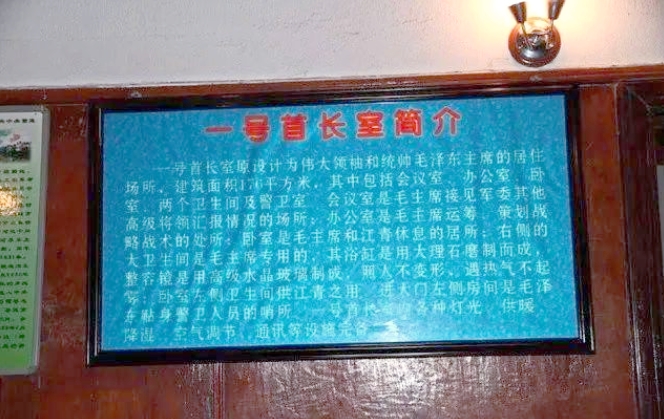 一号首长室简介
一号首长室原设计为伟大领袖和统帅毛泽东主席的居住
场所，建筑面积176平方米，其中包括会议室、办公室、卧
室、两个卫生间及警卫室。会议室是毛主席接见军委其他
高级将领汇报情况的场所；办公室是毛主席运筹、策划战
略战术的处所；卧室是毛主席和江青休息的居所；右侧的
大卫生间是毛主席专用的，其浴缸是用大理石磨制而成，
整容镜是用高级水晶玻璃制成，照人不变形，遇热气不起
雾；卧室左侧卫生间供江青之用。进大门左侧房间是毛泽
东贴身警卫人员的哨所。一号首长 各种灯光、供暖、
降湿、空气调节、通讯等设施完备